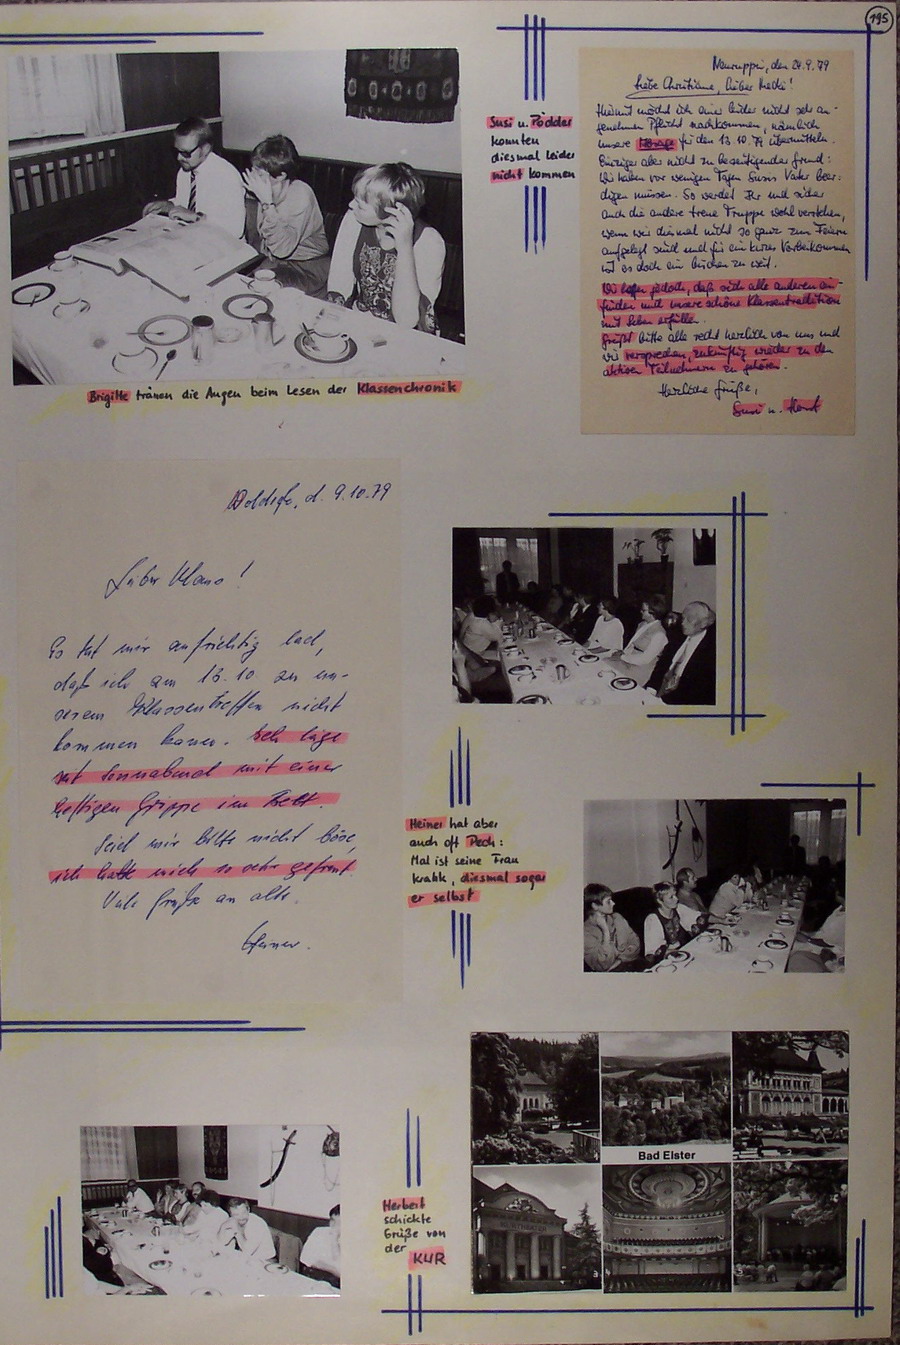 195
Susi u. Pödder
konnten
diesmal leider
nicht kommen
Neuruppin, den 24.9.79
Liebe Christiane, lieber Hecki!
Hiermit möcht ich einer leider nicht sehr an-
genehmen Pflicht nachkommen, nämlich
unsere Absage für den 13.10.79 übermitteln.
Einziger aber nicht zu beseitigender Grund:
Wir haben vor wenigen Tagen Susis Vater beer-
digen müssen. So werdet Ihr und sicher
auch die andere treue Truppe wohl verstehen,
wenn wir diesmal nicht so ganz zum Feiern
aufgelegt sind und für ein kurzes Vorbeikommen
ist es doch ein bischen zu weit.
Wir hoffen jedoch, daß sich alle anderen ein-
finden und unsere schöne Klassentradition
mit Leben erfüllen.
Grüßt bitte alle recht herzlich von uns und
wir versprechen, zukünftig wieder zu den
aktiven Teilnehmern zu gehören.
Herzliche Grüße,
Susi u. Horst
Brigitte tränen die Augen beim Lesen der Klassenchronik
d. 9.10.79
Lieber Klaus!
Es tut mir aufrichtig leid,
daß ich am 13.10 zu un-
serem Klassentreffen nicht
kommen kann. Ich liege
seit Sonnabend mit einer
heftigen Grippe im Bett.
Seid mir bitte nicht böse,
ich hatte mich so sehr gefreut.
Viele Grüße an alle.
Heiner hat aber
auch oft Pech:
Mal ist seine Frau
krank, diesmal sogar
er selbst
Herbert
schickte
Grüße von
der KUR
Bad Elster